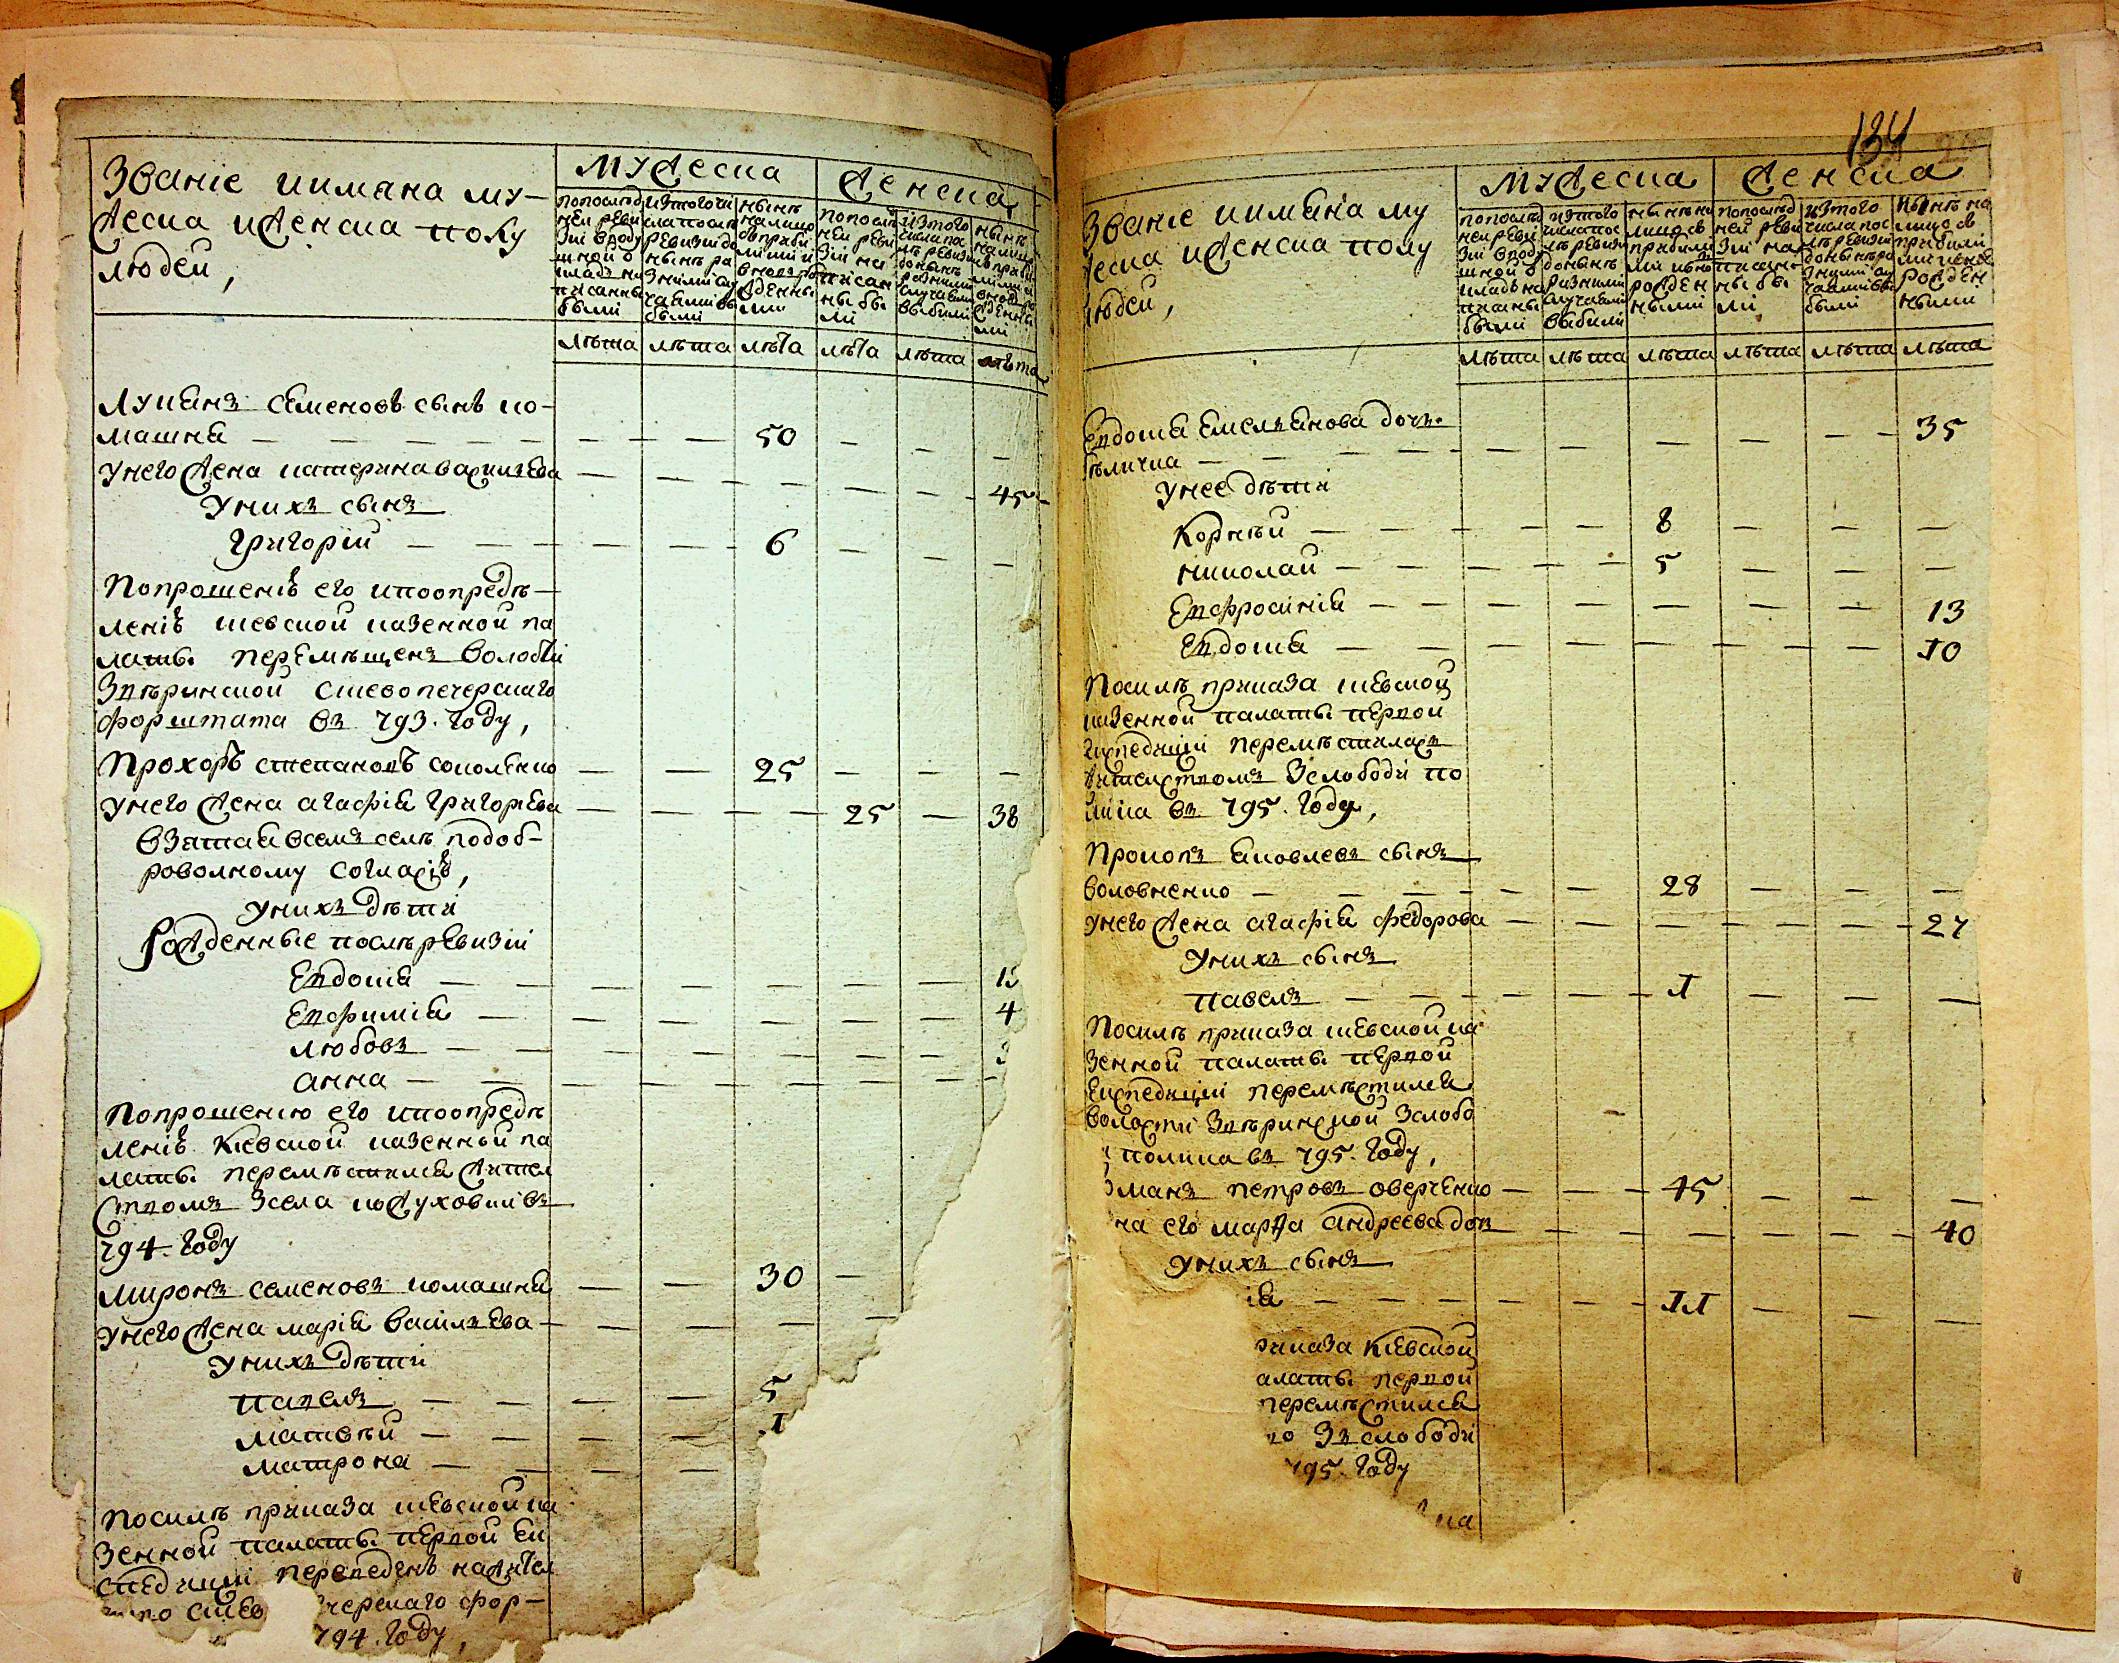 Званіе иимяна му-
жеска иженска полу
людей,
мужеска
женска
попослед
ней реви
зіи вподу
шной о
кладъ на
писанны
были
изтого чи
сла после
ревизіи до
нынѣ ра
зними слу
чаями вы
были
нынѣ
налицо
съприбы
лими и
вновь ро
жденны
ми
попослед
ней реви
зіи на
писан
ны бы
ли
изтого
числа по
слѣ ревизіи
донынѣ
разними
случаями
выбыли
нынѣ
налицо
лѣта лѣта лѣта лѣта лѣта лѣта
Лукянъ Семеновъ сынъ ко-
машня 50
унего жена катерина василіева 45
Унихъ сынъ
григорій 6
Попрошенію его ипоопредѣ-
ленію кіевской казенной па
латы перемѣщенъ волости
Звѣринской скіево печерскаго
форштата въ 793. году,
Прохоръ степановъ соколенко 25
унего жена агафія григоріева 25 38
взятая всемъ селѣ подоб-
роволному согласію,
унихъ дѣти
Рожденные послѣ ревизіи
Евдокія
Евфимія 4
любовъ
анна
Попрошенію его ипоопредѣ
ленію Кіевской казенной па
латы перемѣстился жител
ствомъ зсела кожуховки въ
794. году
миронъ семеновъ комашня 30
унего жена марія василіева
унихъ дѣти
павелъ 5
матвѣй 1
матрона
Посилѣ приказа кіевской ка
зенной палаты первой ек
спедиціи переведенъ нажител
ство скіево черскаго фор-
794. году,
134
Званіе иимяна му
жеска иженска полу
людей,
мужеска
женска
попослед
ней реви
зіи вподу
шной о
кладъ на
писаны
были
изтого
числа пос
лѣ ревизіи
донынѣ
разними
случаями
выбыли
нынѣ на
лицо съ
прибыли
ми ивно
рожден
ными
попослед
ней реви
зіи на
писан
ны бы
ли
изтого
числа пос
лѣ ревизіи
донынѣ ра
зними слу
чаями вы
были
нынѣ на
лицо съ
прибыли
рожден
ными
лѣта лѣта лѣта лѣта лѣта лѣта
Евдокія Емельянова дочь 35
унее дѣти
Корнѣй 8
николай 5
Евфросинія 13
Евдокія 10
Посилѣ приказа кіевской
казенной палаты первой
експедиціи перемѣстилась
жителствомъ зслободи по
лика въ 795. году,
Прокопъ яковлевъ сынъ
воловненко 28
унего жена агафія федорова 27
Унихъ сынъ
павелъ 1
Посилѣ приказа кіевской ка
зенной палаты первой
експедиціи перемѣстился
волости Звѣринской зслобо
полика въ 795. году,
манъ петровъ оверченко 45
на его марѳа андреева доч 40
Унихъ сынъ
ія 11
риказа Кіевской
алаты первой
перемѣстился
во зслободи
795. году
ка